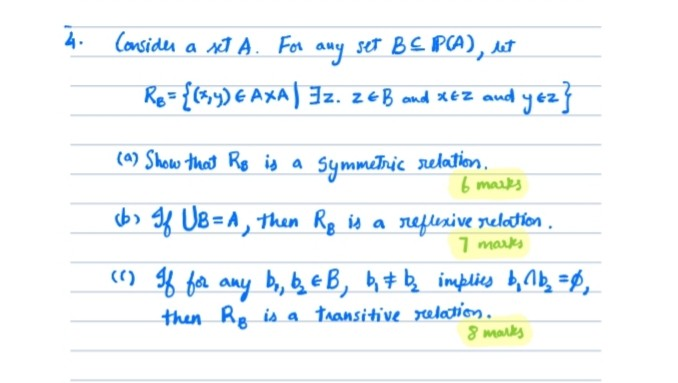 4. Consider a set A. For any set B ⊆ P(A), let
R_B = {(x,y) ∈ A×A | ∃z. z ∈ B and x ∈ z and y ∈ z}
(a) Show that R_B is a symmetric relation.
6 marks
(b) If ∪B = A, then R_B is a reflexive relation.
7 marks
(c) If for any b₁, b₂ ∈ B, b₁ ≠ b₂ implies b₁ ∩ b₂ = ∅,
then R_B is a transitive relation.
8 marks